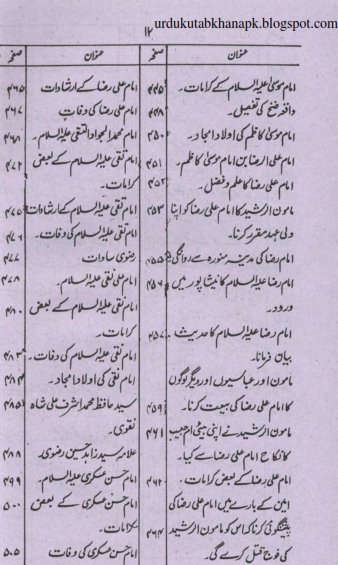 urdukutabkhanapk.blogspot.com
۱۲
عنوان صفحہ
امام موسیٰ علیہ السلام کے کرامات۔ ۴۴۵
واقعہ فخ کی تفصیل۔ ۴۴۸
امام موسیٰ کاظم کی اولاد امجاد۔ ۴۵۰
امام علی الرضا بن امام موسیٰ کاظم۔ ۴۵۱
امام علی رضا کا علم و فضل۔ ۴۵۲
مامون الرشید کا امام علی رضا کو اپنا ۴۵۳
ولی عہد مقرر کرنا۔
امام رضا کی مدینہ منورہ سے روانگی ۴۵۵
امام رضا علیہ السلام کا نیشاپور میں ۴۵۶
ورود۔
امام رضا علیہ السلام کا حدیث ۴۵۷
بیان فرمانا۔
مامون اور عباسیوں اور دیگر لوگوں
کا امام علی رضا کی بیعت کرنا۔ ۴۵۹
مامون الرشید نے اپنی بیٹی ام حبیب ۴۶۱
کا نکاح امام علی رضا سے کیا۔
امام علی رضا کے بعض کرامات۔ ۴۶۲
امین کے بارے میں امام علی رضا کی
پیشگوئی کرنا کہ اس کو مامون الرشید ۴۶۴
کی فوج قتل کرے گی۔
عنوان صفحہ
امام علی رضا کے ارشادات ۴۶۵
امام علی رضا کی وفات ۴۶۷
امام محمد الجواد التقی علیہ السلام۔ ۴۶۸
امام تقی علیہ السلام کے بعض ۴۷۲
کرامات۔
امام تقی علیہ السلام کے ارشادات ۴۷۵
امام تقی علیہ السلام کی وفات۔ ۴۷۶
رضوی سادات ۴۷۷
امام علی نقی علیہ السلام۔ ۴۷۸
امام نقی علیہ السلام کے بعض ۴۸۰
کرامات۔
امام نقی علیہ السلام کی وفات۔ ۴۸۳
امام نقی کی اولاد امجاد۔ ۴۸۴
سید حافظ محمد اشرف علی شاہ ۴۸۵
نقوی۔
علامہ سید زاہد حسین رضوی۔ ۴۸۸
امام حسن عسکری علیہ السلام۔ ۴۹۹
امام حسن عسکری کے بعض ۵۰۰
کرامات۔
امام حسن عسکری کی وفات ۵۰۵